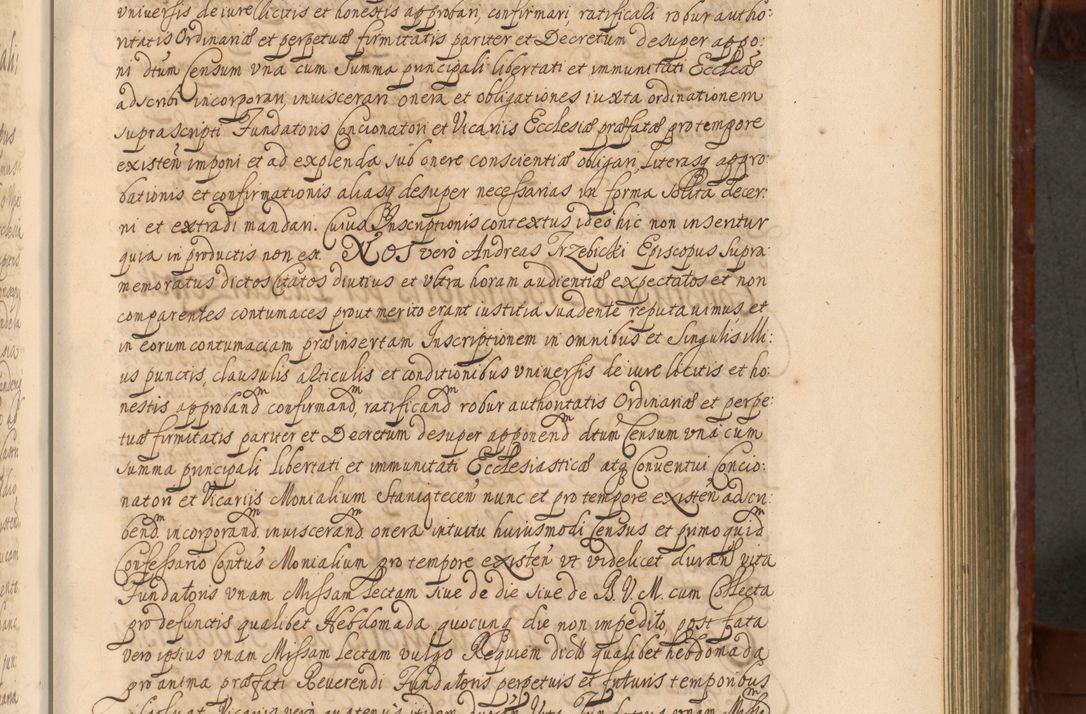 universis de iure licitis et honestis approbari, confirmari, ratificali robur autho:
ritatis Ordinariæ et perpetuæ firmitatis pariter et Decretum desuper appo:
ni dtum Censum una cum Summa principali libertati et immunitati Ecclcæ
adscribi incorporari inuiscerari onera et obligationes iuxta ordinationem
suprascripti Fundatoris Concionatori et Vicariis Ecclesiæ præfatæ pro tempore
existeñ imponi et ad explenda sub onere conscientiæ obligari, literasq appro:
bationis et confirmationis aliasq desuper necessarias in forma solita decer:
ni et extradi mandari. Cuius Inscriptionis contextus ideo hic non inseritur
quia in productis non est. NOS vero Andreas Trzebicki Episcopus supra:
memoratus dictos Citatos diutius et ultra horam audientiæ expectatos et non
comparentes contumaces prout merito erant iustitia suadente reputauimus, et
in eorum contumaciam præinsertam Inscriptionem in omnibus et singulis illi:
us punctis, clausulis alticulis et conditionibus universis de iure locitis et ho:
nestis approband confirmand, ratificand robur authoritatis Ordinariæ et perpe:
tuæ firmitatis pariter et Decretum desuper apponend dtum Censum una cum
summa principali libertati et immunitati Ecclesiasticæ atq Conventui Concio:
natori et Vicariis Monialium Staniqtecen nunc et pro tempore existeñ adscri:
bend, incorporand, inuiscerand, onera intuitu huiusmodi Census et primo quid
Confessario Contus Monialium pro tempore existeñ ut videlicet durañ vita
Fundatoris unam Missam lectam siue de die siue de B. V. M. cum Collecta
pro defunctis qualibet Hebdomada quocunq die non impedito, post fata
vero ipsius unam Missam lectam vulgo Requiem dictã qualibet hebdomada
pro anima præfati Reverendi Fundatoris perpetuis et futuris temporibus